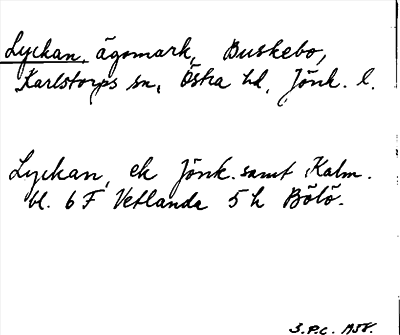 Lyckan, ägomark, Buskebo,
Karlstorps sn, Östra hd, Jönk. l.
Lyckan, ek Jönk. samt Kalm.
bl. 6 F Vetlanda 5 h Bölö.
S.P.C. 1958.